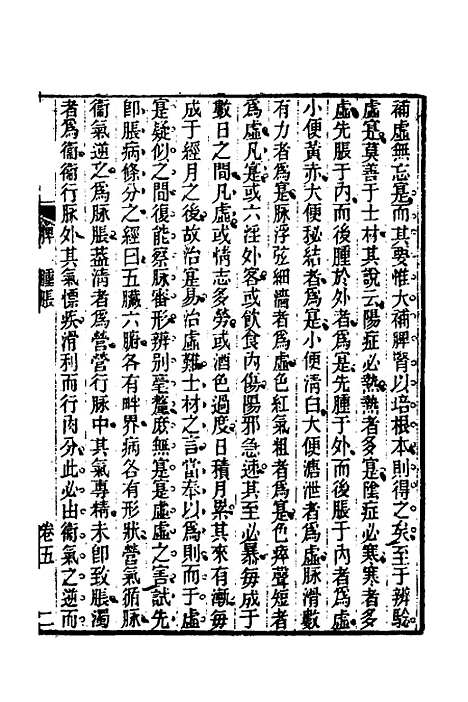 補虛無忘寔而其要惟大補脾腎以培根本則得之矣至于辨驗
虛寔莫善于士材其說云陽症必熱熱者多寔陰症必寒寒者多
虛先脹于內而後腫於外者為寔先腫于外而後脹于內者為虛
小便黃赤大便秘結者為寔小便清白大便溏泄者為虛脉滑數
有力者為寔脉浮弦細濇者為虛色紅氣粗者為寔色瘁聲短者
為虛凡寔或六淫外客或飲食內傷陽邪急速其至必暴每成于
數日之間凡虛或情志多勞或酒色過度日積月累其來有漸每
成于經月之後故治寔易治虛難士材之言當奉以為則而于虛
寔疑似之間復能察脉審形辨別毫釐庶無寔寔虛虛之害試先
卽脹病條分之經曰五臟六腑各有畔界病各有形狀營氣循脉
衞氣逆之為脉脹蓋清者為營營行脉中其氣專精未卽致脹濁
者為衞衞行脉外其氣慓疾滑利而行肉分此必由衞氣之逆而
腫脹
卷五
二